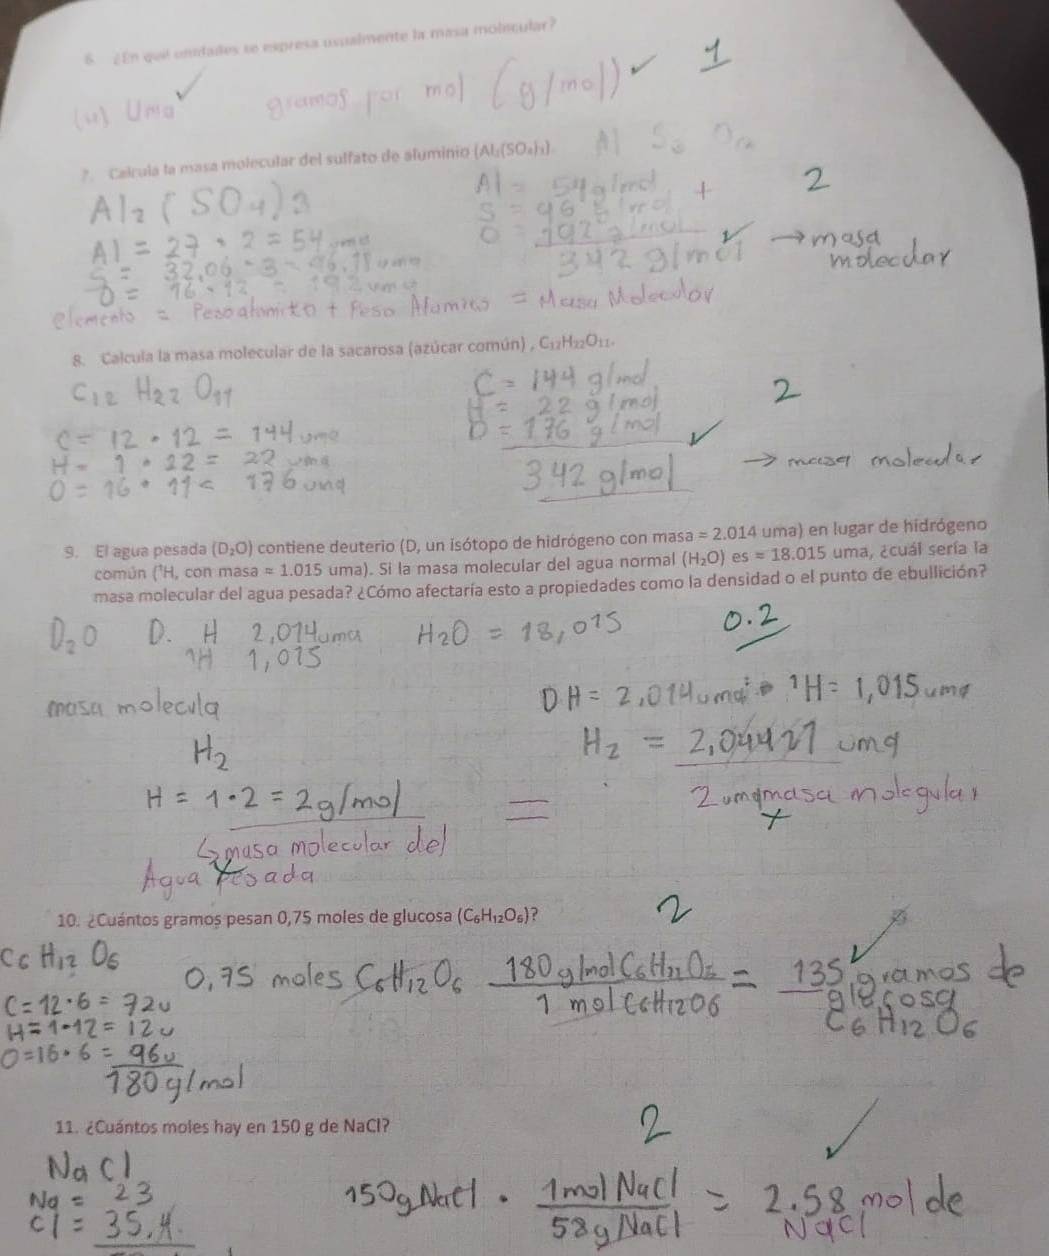 6. ¿En qué unidades se expresa usualmente la masa molecular?
(u) Uma ✓ gramos por mol (g/mol) ✓ 1
7. Calcula la masa molecular del sulfato de aluminio (Al₂(SO₄)₃).
Al₂(SO₄)3
Al = 54 g/mol + 2
S = 96 g/mol
O = 192 g/mol
342 g/mol ✓ → masa molecular
Al = 27 · 2 = 54 uma
S = 32,06 · 3 = 96,18 uma
O = 16 · 12 = 192 uma
elemento = Peso atomico + Peso Atomico = Masa Molecular
8. Calcula la masa molecular de la sacarosa (azúcar común) , C₁₂H₂₂O₁₁.
C₁₂ H₂₂ O₁₁
C = 144 g/mol
H = 22 g/mol 2
O = 176 g/mol
342 g/mol ✓ → masa molecular
C = 12 · 12 = 144 uma
H = 1 · 22 = 22 uma
O = 16 · 11 = 176 uma
9. El agua pesada (D₂O) contiene deuterio (D, un isótopo de hidrógeno con masa ≈ 2.014 uma) en lugar de hidrógeno
común (¹H, con masa ≈ 1.015 uma). Si la masa molecular del agua normal (H₂O) es ≈ 18.015 uma, ¿cuál sería la
masa molecular del agua pesada? ¿Cómo afectaría esto a propiedades como la densidad o el punto de ebullición?
D₂O D. H 2,014uma H₂O = 18,015 0.2
1H 1,015
masa molecula
DH = 2,014uma ¹H = 1,015uma
H₂
H₂ = uma
H = 1·2 = 2g/mol = 2uma masa molegular
masa molecular del
Agua Pesada
10. ¿Cuántos gramos pesan 0,75 moles de glucosa (C₆H₁₂O₆)?
2
C₆ H₁₂ O₆
0,75 moles C₆H₁₂O₆ 180 g/mol C₆H₁₂O₆ / 1 mol C₆H₁₂O₆ = 135 gramos de
C₆ H₁₂ O₆
C=12·6 = 72u
H=1·12 = 12u
O=16·6 = 96u
180g/mol
11. ¿Cuántos moles hay en 150 g de NaCl?
2 ✓
NaCl
Na = 23
Cl = 35,4
150g NaCl · 1mol NaCl / 58g NaCl = 2.58 mol de
NaCl